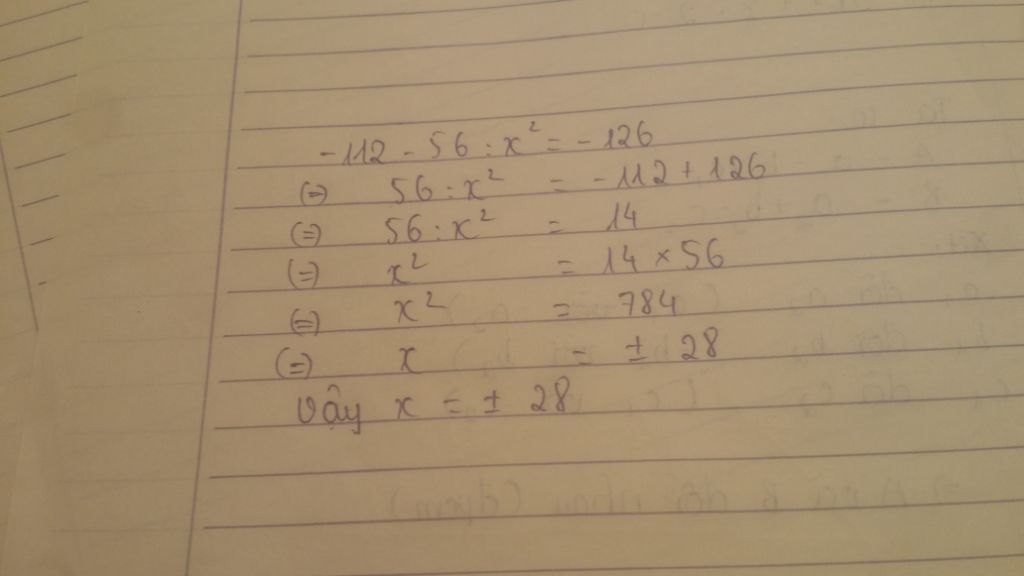 -112 - 56 : x² = -126
(=) 56 : x² = -112 + 126
(=) 56 : x² = 14
(=) x² = 14 × 56
(=) x² = 784
(=) x = ± 28
Vậy x = ± 28